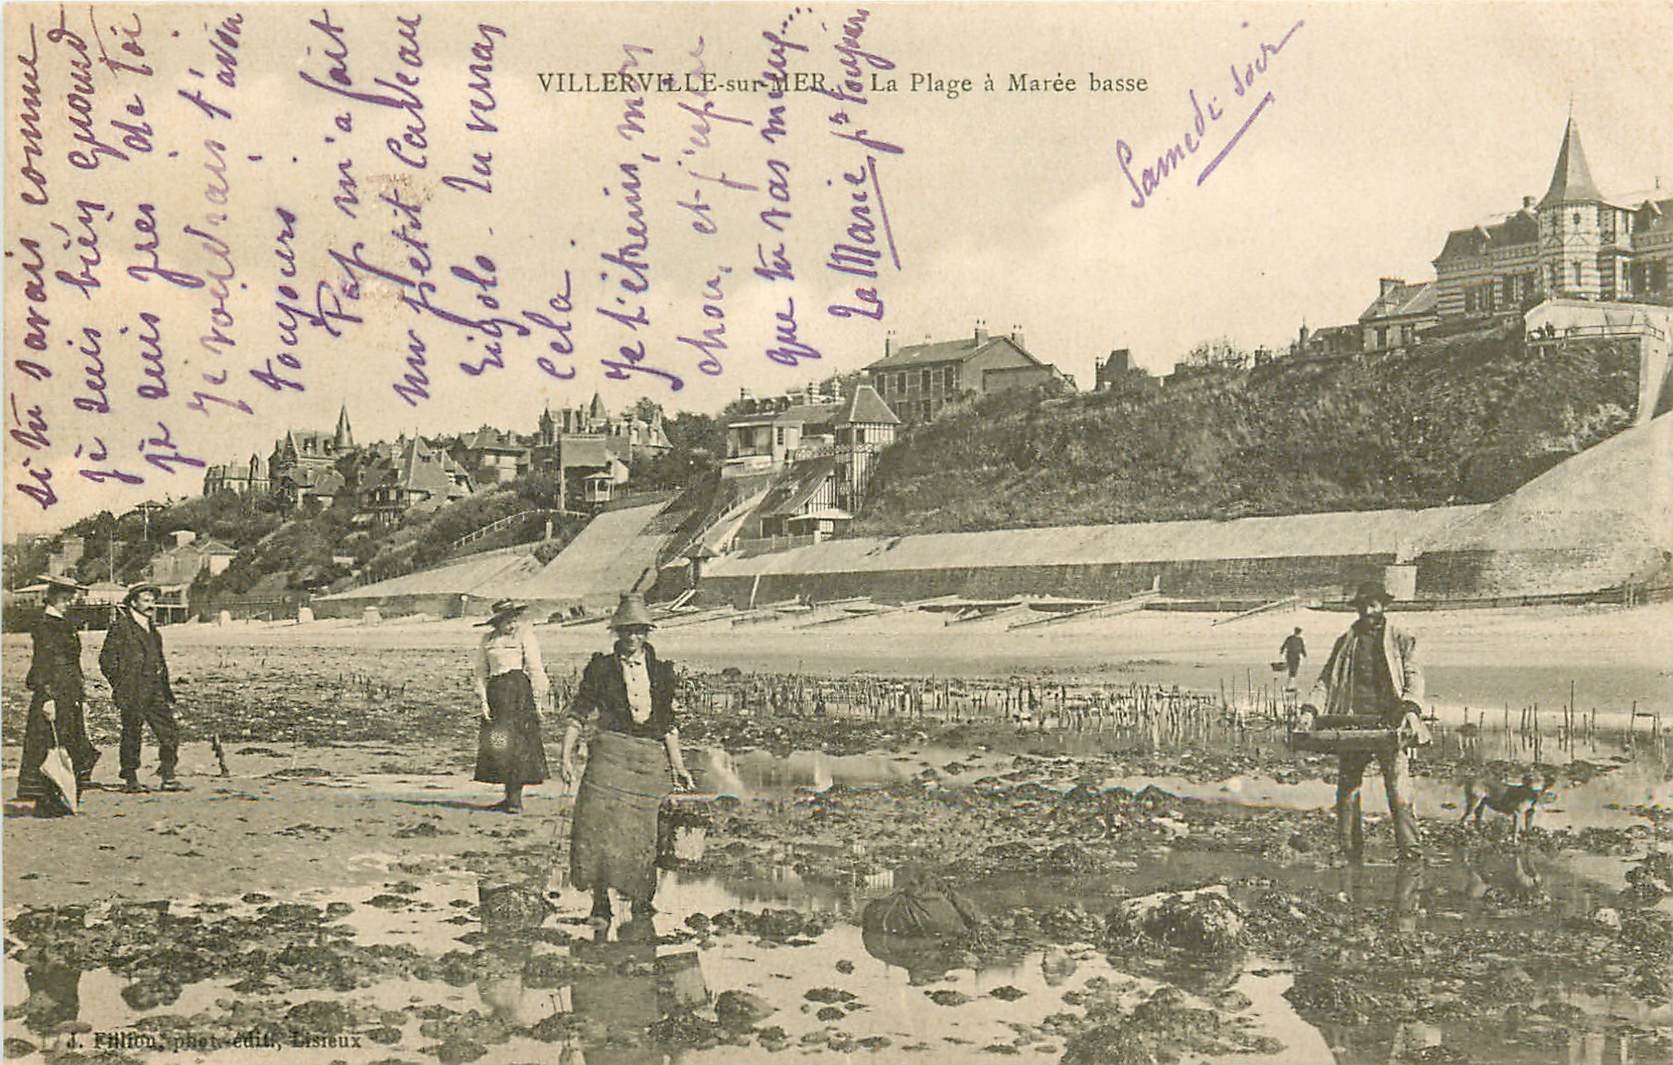 VILLERVILLE-sur-MER. - La Plage à Marée basse
Samedi soir
si tu savais comme
je suis bien quand
je suis près de toi
Je voudrais t'avoir
toujours.
Pap m'a fait
un petit cadeau
rigolo. Tu verras
cela.
Je t'étreins, mon
chou, et j'espère
que tu vas mieux....
Ta Marie pr toujours
J. Fillion, phot.-édit., Lisieux